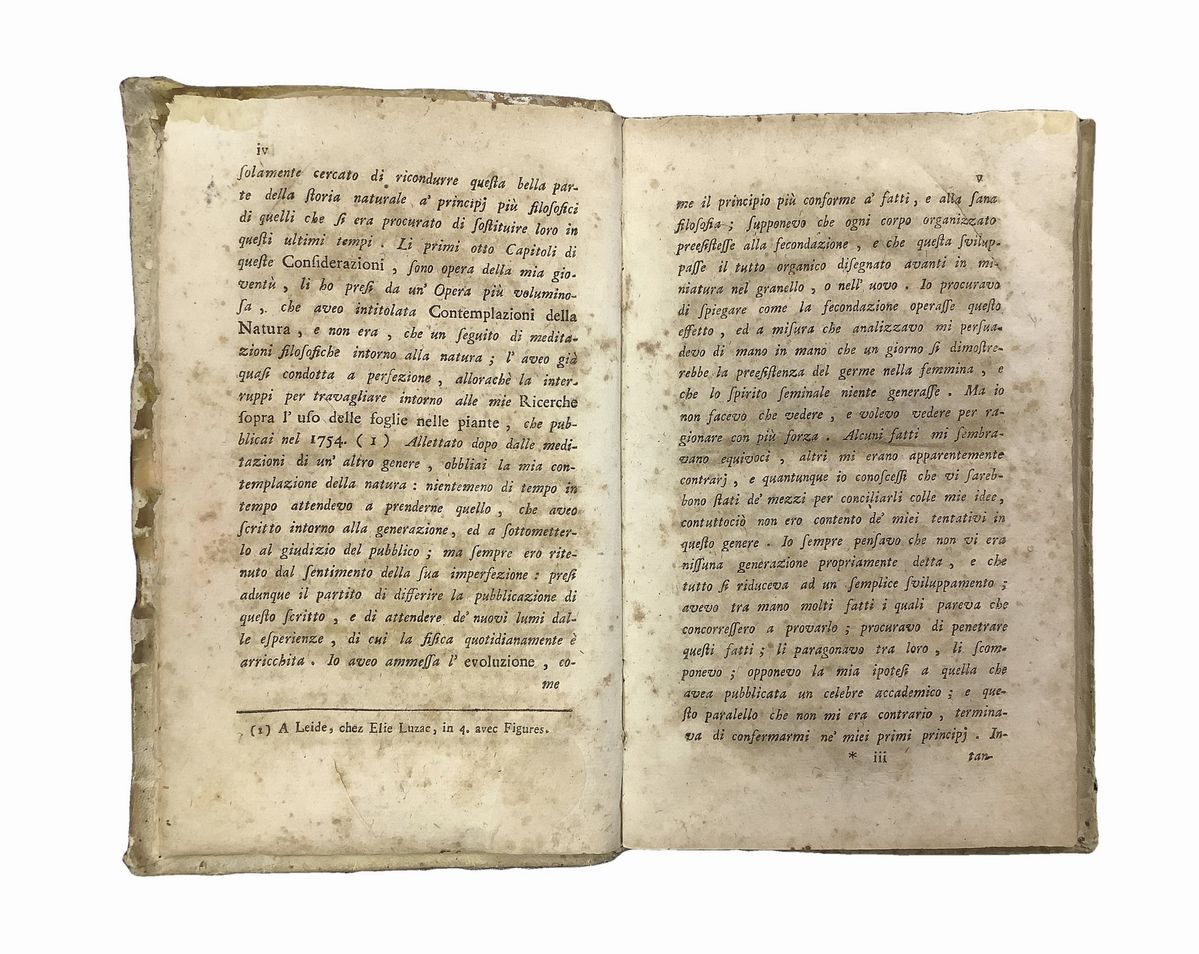 iv
ſolamente cercato di ricondurre queſta bella par-
te della ſtoria naturale a' principj più filoſofici
di quelli che ſi era procurato di ſoſtituire loro in
queſti ultimi tempi . Li primi otto Capitoli di
queſte Conſiderazioni , ſono opera della mia gio-
ventù , li ho preſi da un' Opera più volumino-
ſa , che aveo intitolata Contemplazioni della
Natura , e non era , che un ſeguito di medita-
zioni filoſofiche intorno alla natura ; l' aveo già
quaſi condotta a perfezione , allorachè la inter-
ruppi per travagliare intorno alle mie Ricerche
ſopra l' uſo delle foglie nelle piante , che pub-
blicai nel 1754. ( 1 ) Allettato dopo dalle medi-
tazioni di un' altro genere , obbliai la mia con-
templazione della natura : nientemeno di tempo in
tempo attendevo a prenderne quello , che aveo
ſcritto intorno alla generazione , ed a ſottometter-
lo al giudizio del pubblico ; ma ſempre ero rite-
nuto dal ſentimento della ſua imperfezione : preſi
adunque il partito di differire la pubblicazione di
queſto ſcritto , e di attendere de' nuovi lumi dal-
le eſperienze , di cui la fiſica quotidianamente è
arricchita . Io aveo ammeſſa l' evoluzione , co-
me
(1) A Leide, chez Elie Luzac, in 4. avec Figures.
v
me il principio più conforme a' fatti , e alla ſana
filoſofia ; ſupponevo che ogni corpo organizzato
preeſiſteſſe alla fecondazione , e che queſta ſvilup-
paſſe il tutto organico diſegnato avanti in mi-
niatura nel granello , o nell' uovo . Io procuravo
di ſpiegare come la fecondazione operaſſe queſto
effetto , ed a miſura che analizzavo mi perſua-
devo di mano in mano che un giorno ſi dimoſtre-
rebbe la preeſiſtenza del germe nella femmina , e
che lo ſpirito ſeminale niente generaſſe . Ma io
non facevo che vedere , e volevo vedere per ra-
gionare con più forza . Alcuni fatti mi ſembra-
vano equivoci , altri mi erano apparentemente
contrarj , e quantunque io conoſceſſi che vi ſareb-
bono ſtati de' mezzi per conciliarli colle mie idee,
contuttociò non ero contento de' miei tentativi in
queſto genere . Io ſempre penſavo che non vi era
niſſuna generazione propriamente detta , e che
tutto ſi riduceva ad un ſemplice ſviluppamento ;
avevo tra mano molti fatti i quali pareva che
concorreſſero a provarlo ; procuravo di penetrare
queſti fatti ; li paragonavo tra loro , li ſcom-
ponevo ; opponevo la mia ipoteſi a quella che
avea pubblicata un celebre accademico ; e que-
ſto paralello che non mi era contrario , termina-
va di confermarmi ne' miei primi principj . In-
* iii tan-